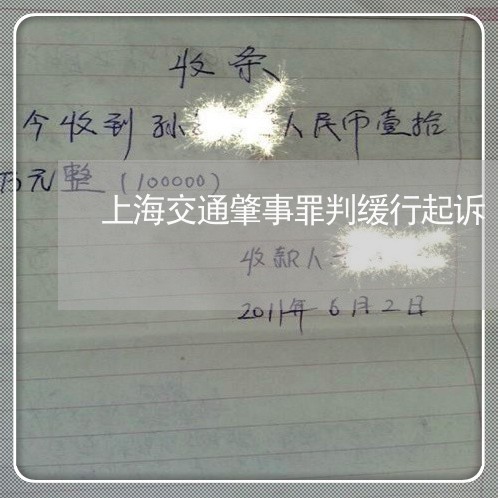 收条
今收到 孙 人民币壹拾
万元整 (100000)
上海交通肇事罪判缓行起诉
收款人
2011年6月2日